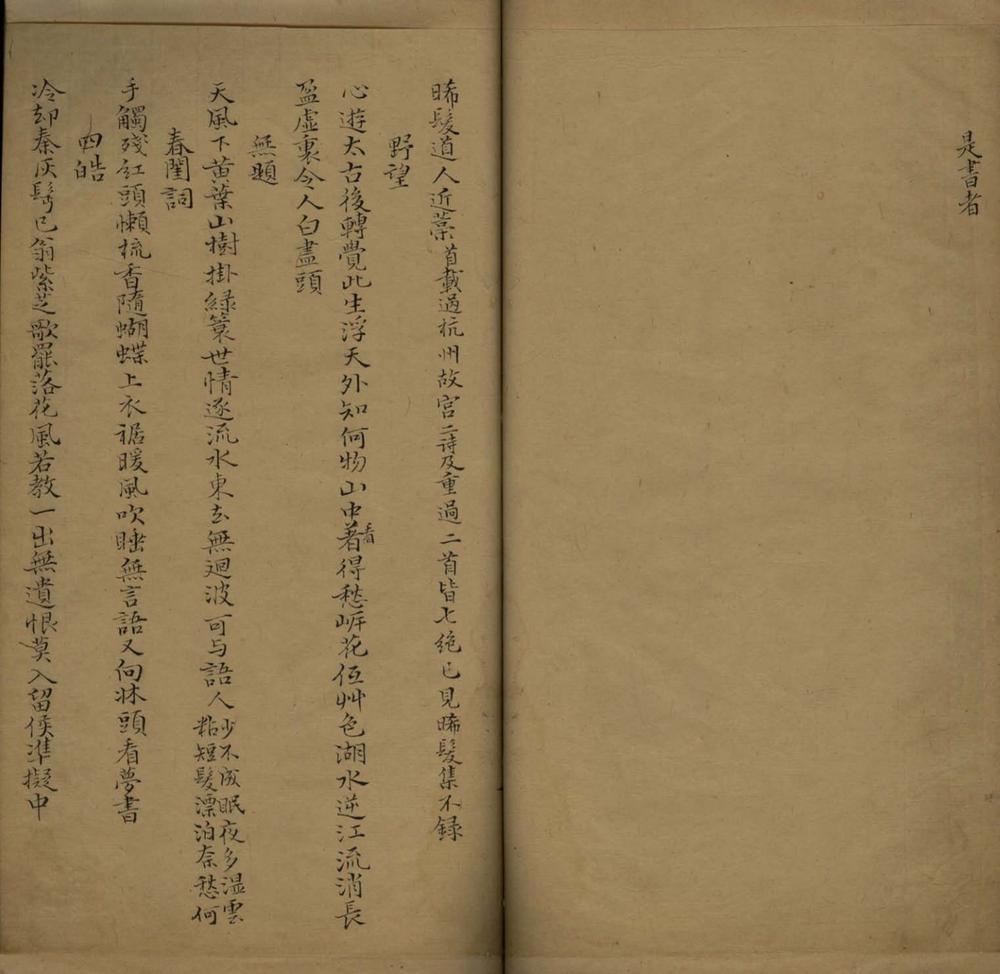 是書者
晞髮道人近藁首載過杭州故宮二诗及重過二首皆七絕已見晞髮集不録
野望
心遊太古後轉覺此生浮天外知何物山中著看得愁岍花伍艸色湖水逆江流消長
盈虛裏令人白盡頭
無題
天風下黄葉山樹掛緑蓑世情逐流水東去無廻波可与語人少不成眠夜多湿雲
粘短髮漂泊奈愁何
春閨詞
手觸殘紅頭懶梳香隨蝴蝶上衣裾暖風吹睡無言語又向牀頭看夢書
四皓
冷却秦灰髩已翁紫芝歌罷落花風若教一出無遺恨莫入留侯準擬中